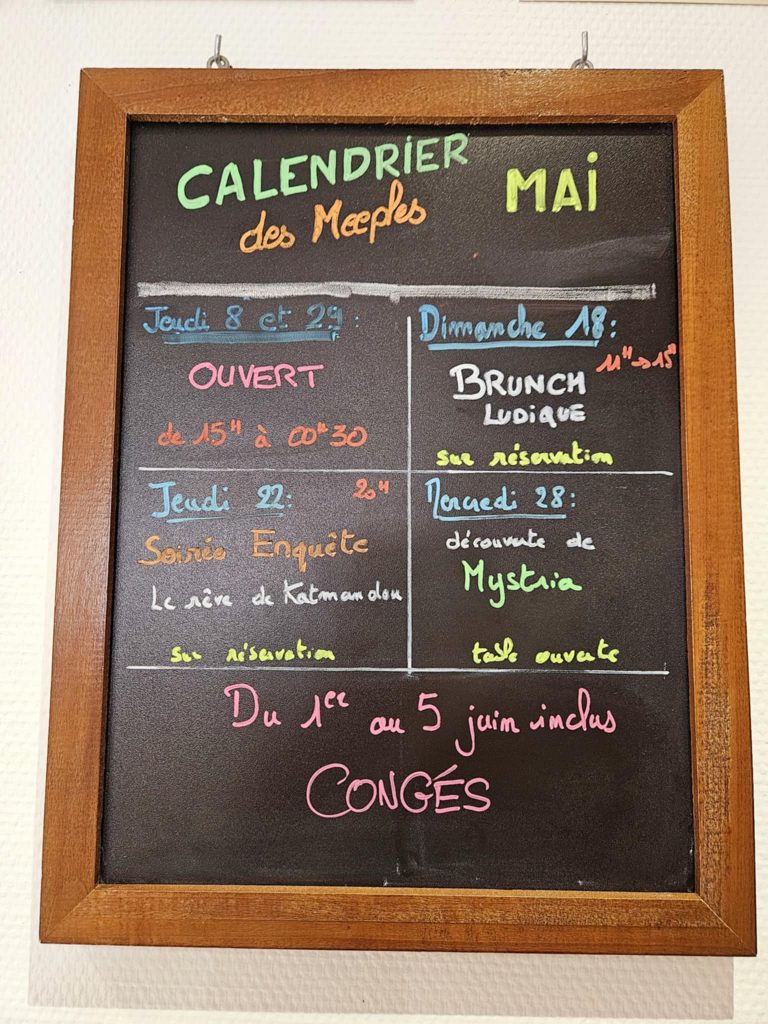 CALENDRIER
des Meeples
MAI
Jeudi 8 et 29:
OUVERT
de 15H à 00H30
Dimanche 18:
11H→15H
BRUNCH
LUDIQUE
sur réservation
Jeudi 22:
20H
Soirée Enquête
Le rêve de Katmandou
sur réservation
Mercredi 28:
découverte de
Mystria
table ouverte
Du 1er au 5 juin inclus
CONGÉS